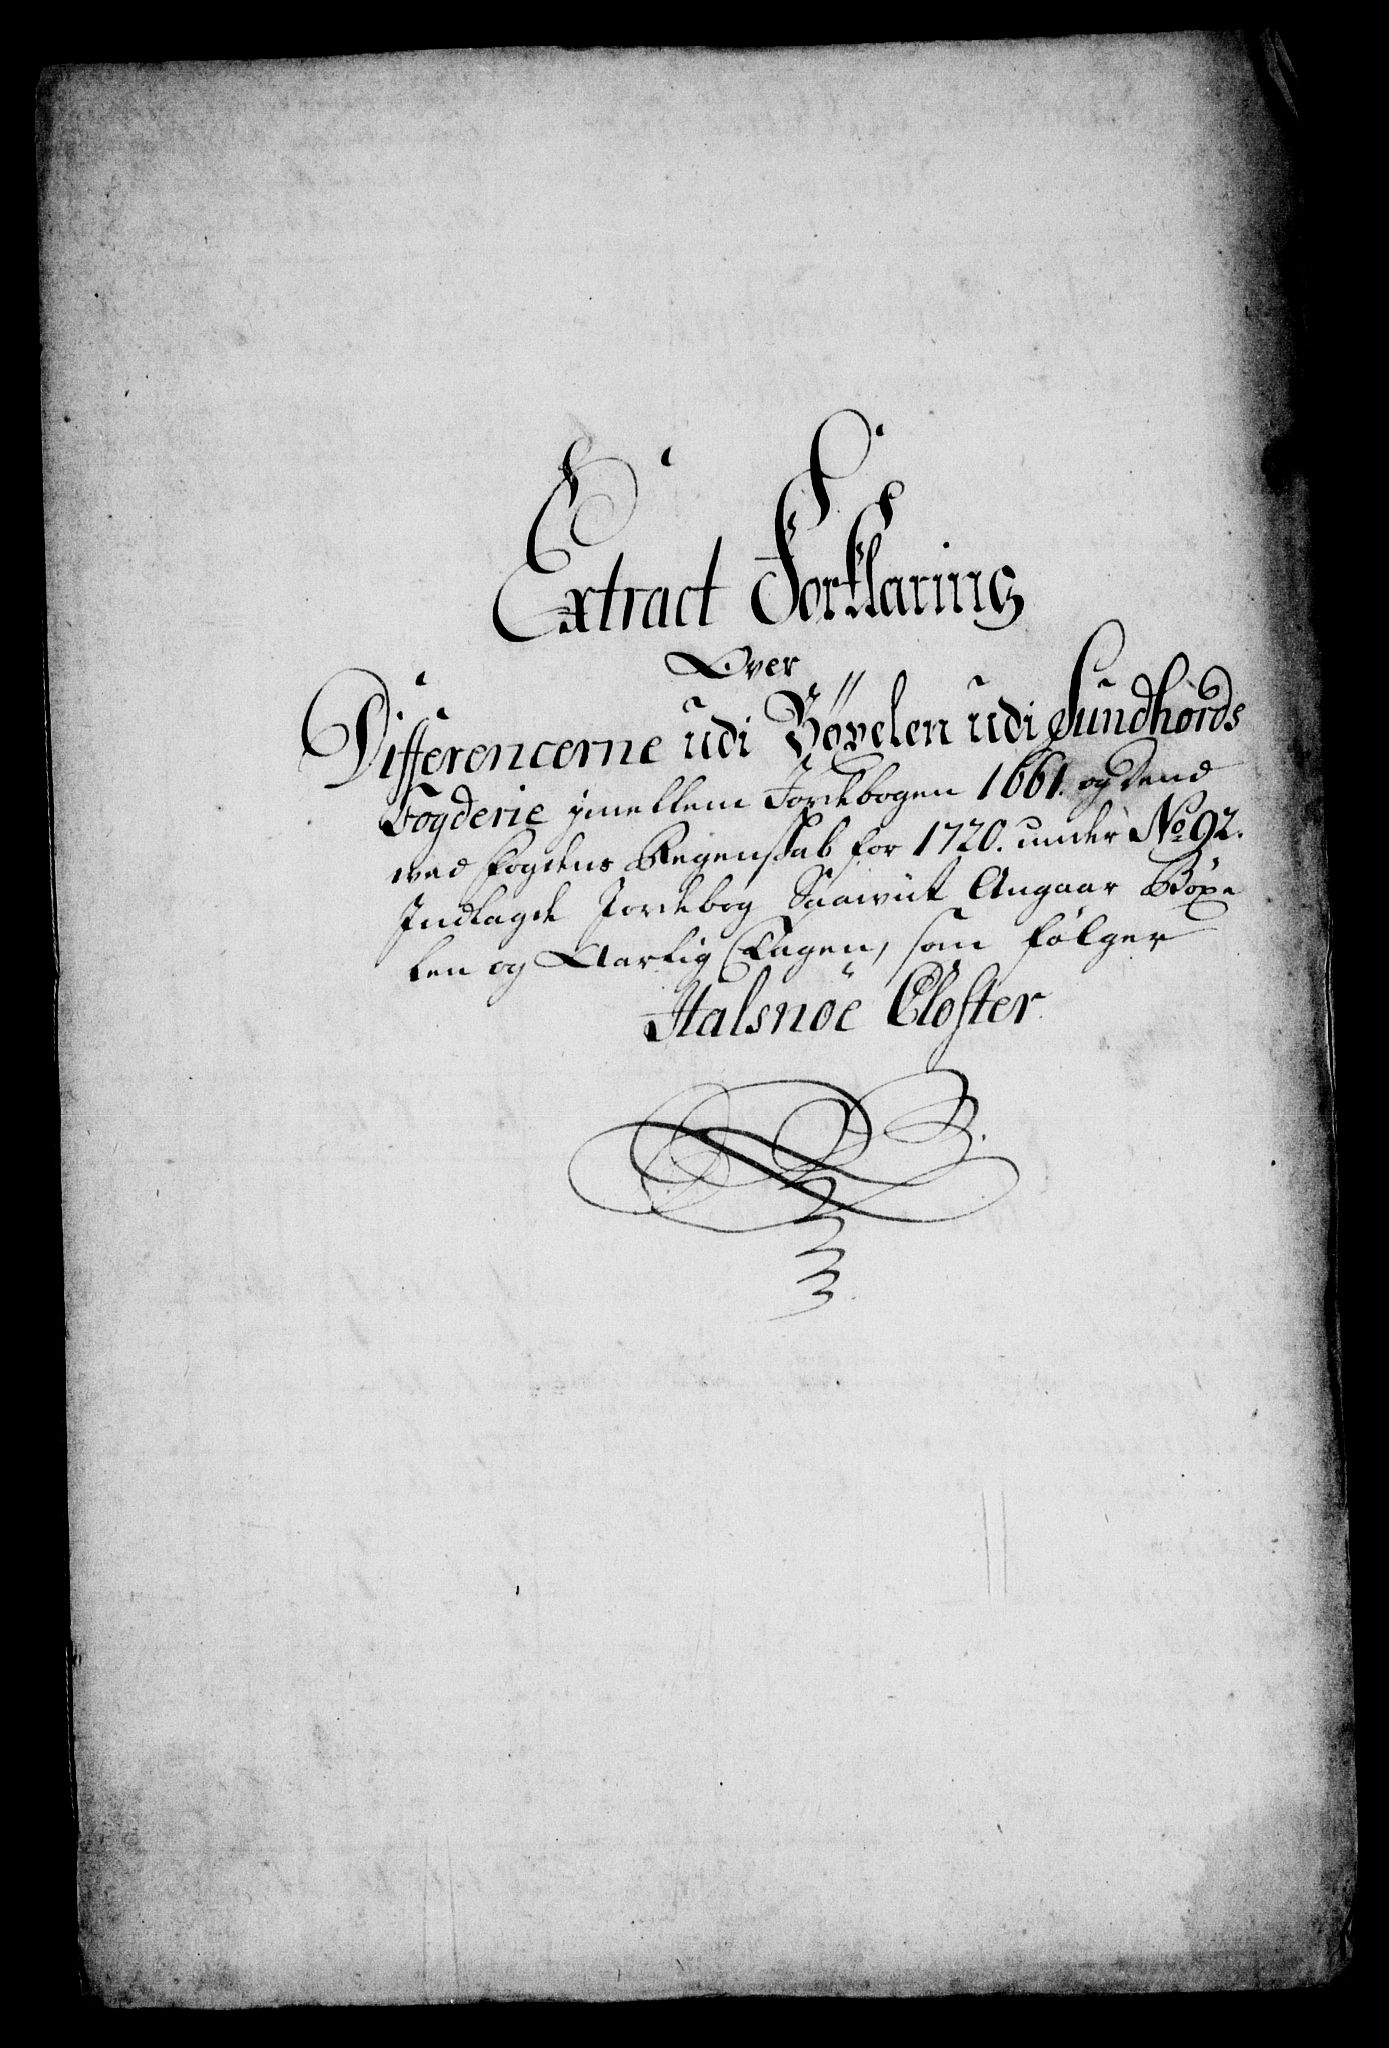 Extract Forklaring
Over
Differencerne udi Böxelen udi Sundhords
Fogderie ymellem Jordebogen 1661. og Dend
ved Fogdens Regenskab for 1720. under No 92.
Indlagde Jordebog Saawiit Angaar Böxe
len og Aarlig Tagen, som følger
Halsnöe Closter